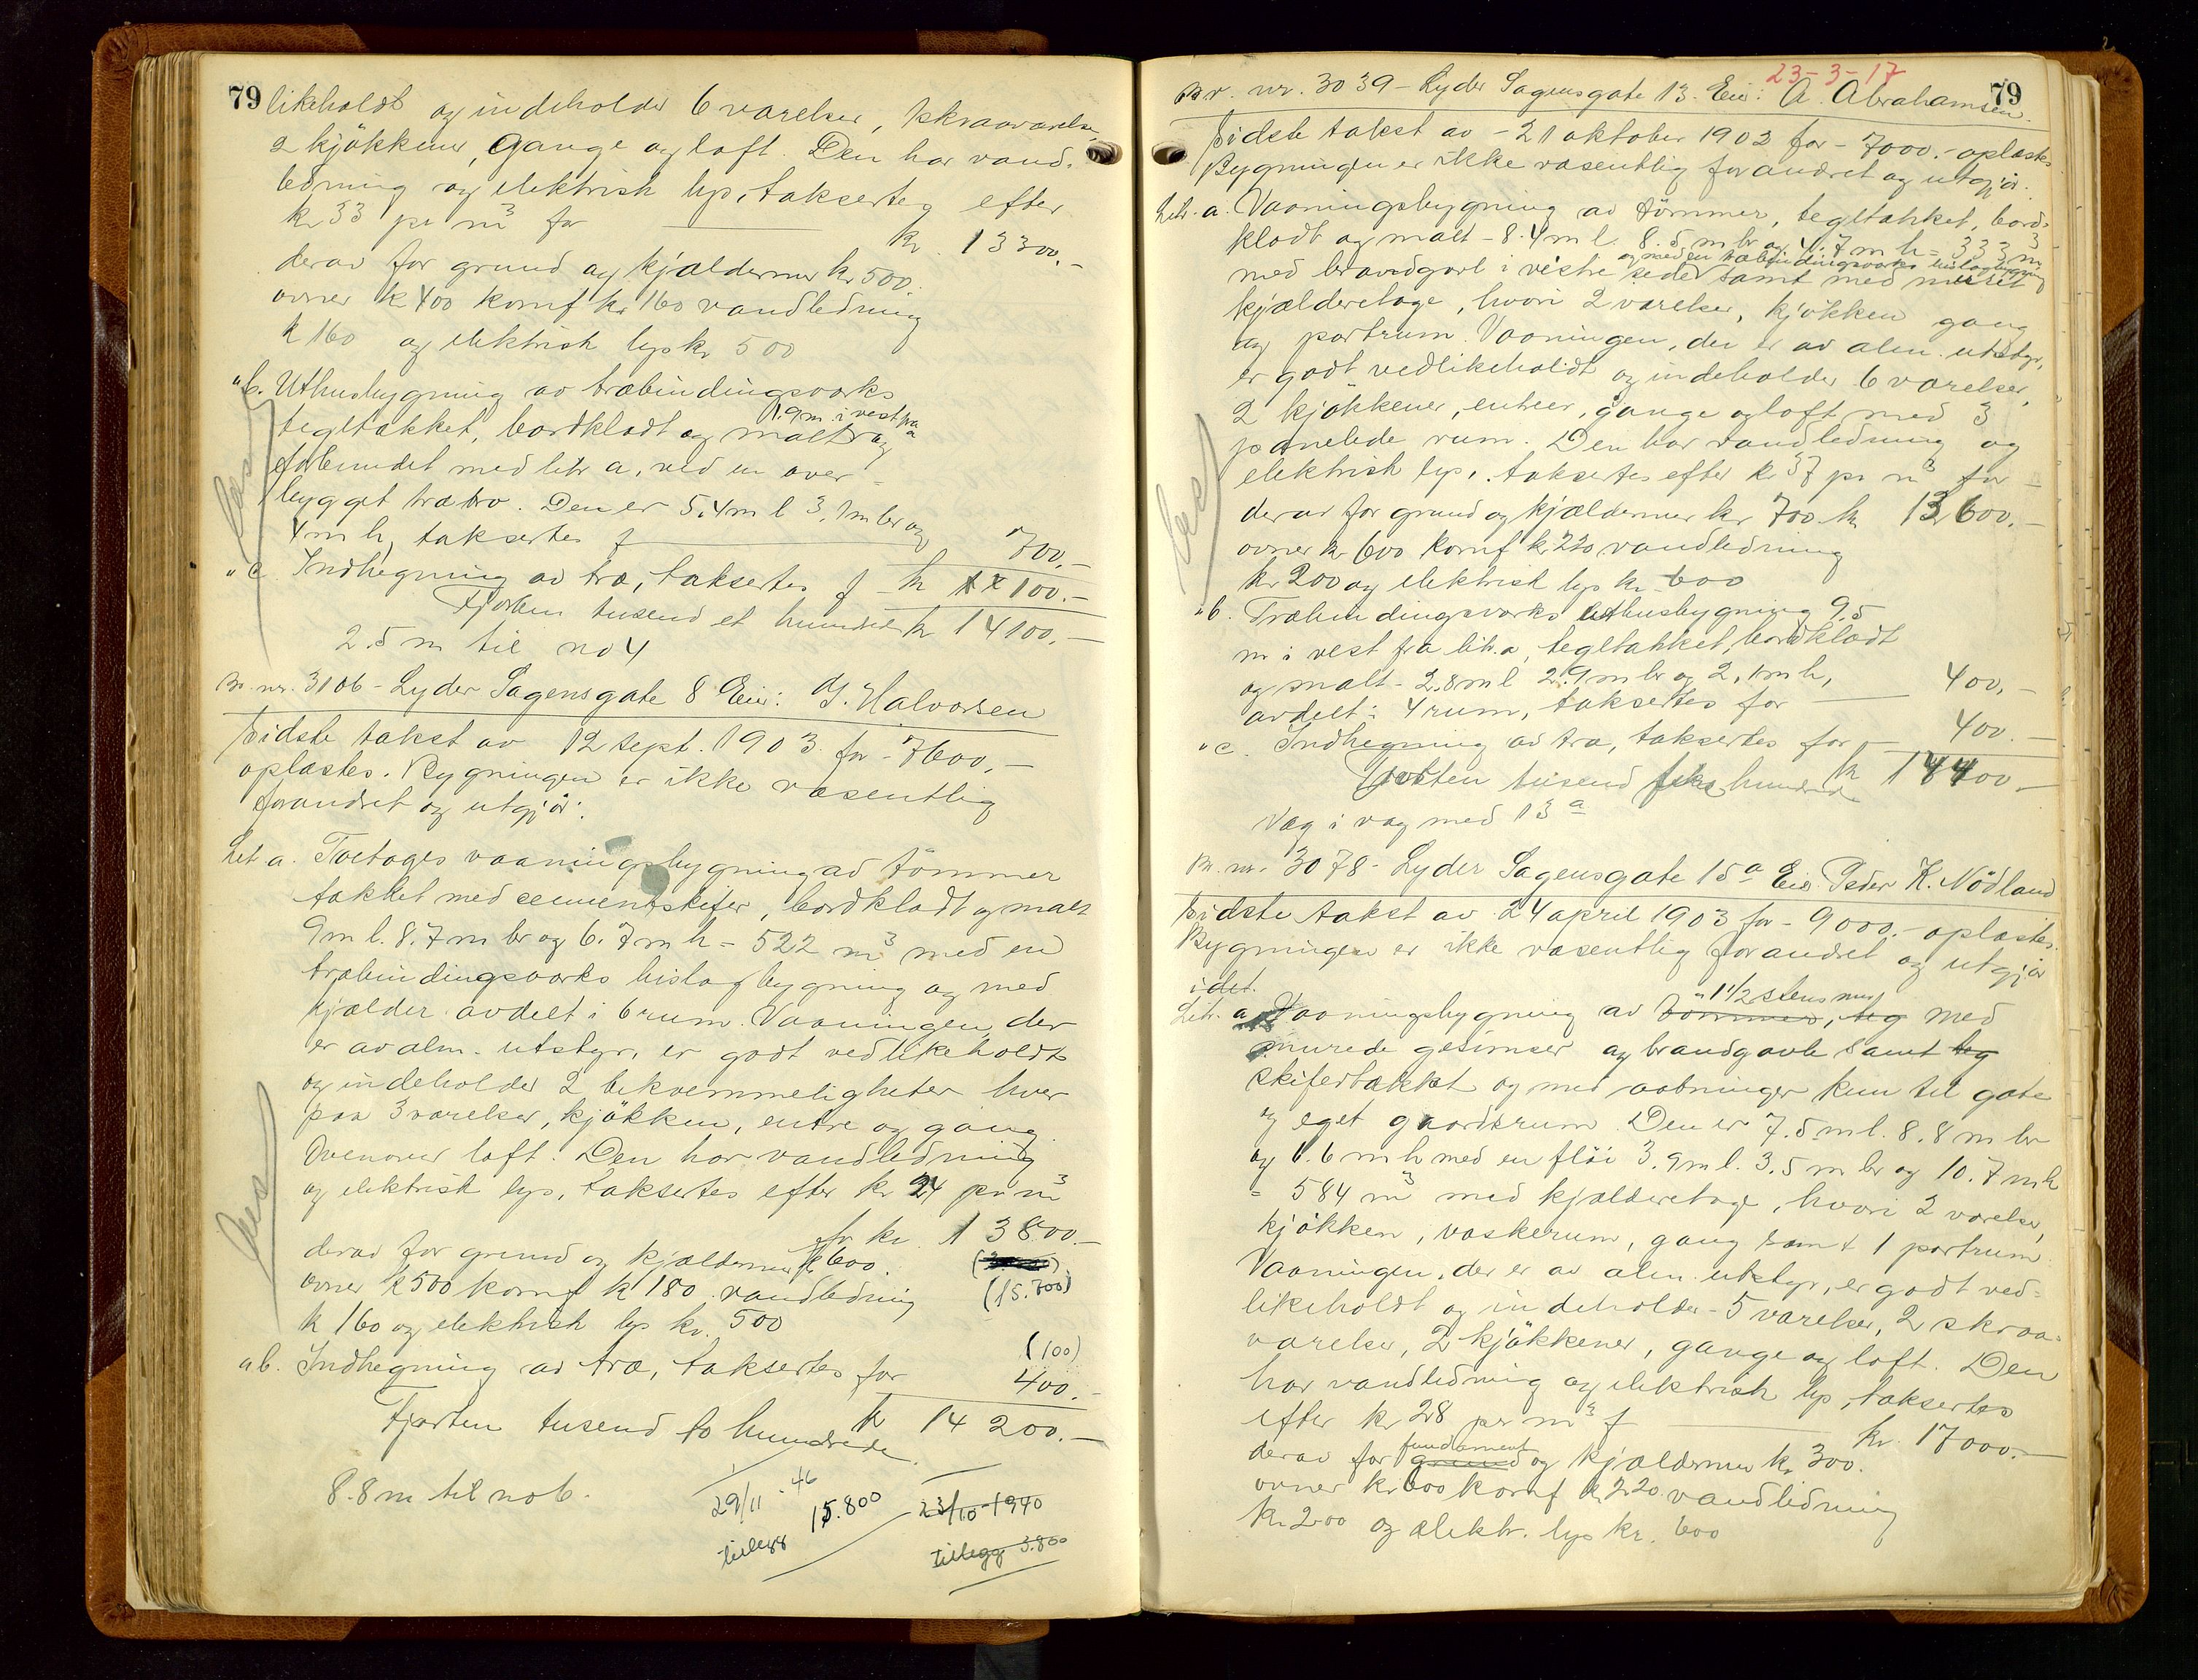 79
likeholdt og indeholder 6 værelser, 1 skraaværelse
2 kjökkener, gange og loft. Den har vand-
ledning og elektrisk lys, takseres efter
kr 33 pr m³ for kr. 13300.-
derav for grund og kjældermur kr 500.
ovner k 400 komf kr 160 vandledning
k 160 og elektrisk lys kr 500
" b. Uthusbygning av træbindingsværks
tegltækket, bordklædt og malt 1.9 m i vest fra a og
forbundet med litr a, ved en over-
bygget træbro. Den er 5.4 m l 3.1 m br og
4 m h, takseres f 700.-
" c Indhegning av træ, takseres f kr 100.-
Fjorten tusend et hundrede kr 14100.-
2.5 m til no 4
Br. nr. 3106 - Lyder Sagensgate 8 Eier: G. Halvorsen
Sidste takst av 12 sept. 1903 for - 7600.-
oplæstes. Bygningen er ikke væsentlig
forandret og utgjör:
Lit a. Toetages vaaningsbygning av tömmer
tækket med cementskifer, bordklædt og malt
9 m l. 8.7 m br og 6.7 m h = 522 m³ med en
træbindingsværks bislagbygning og med
kjælder avdelt i 6 rum. Vaaningen, der
er av alm. utstyr, er godt vedlikeholdt
og indeholder 2 bekvemmeligheter hver
paa 3 værelser, kjökken, entre og gang.
Ovenover loft. Den har vandledning
og elektrisk lys, takseres efter kr 24 pr m³
for kr. 13800.-
derav for grund og kjældermur k 600.
ovner k 500 komf k 180 vandledning (15.700)
k 160 og elektrisk lys kr. 500
(100)
" b. Indhegning av træ, takseres for 400.-
Fjorten tusend to hundrede kr 14200.-
8.8 m til no 6.
29/11 - 46
tillegg 15.800
23/10-1940
tillegg 3.800
23-3-17
79
Br. nr. 3039 - Lyder Sagensgate 13. Eier: A. Abrahamsen.
Sidste takst av - 21 oktober 1902 for - 7000.- oplæstes
Bygningen er ikke væsentlig forandret og utgjör.
Litr. a. Vaaningsbygning av tömmer, tegltækket, bord-
klædt og malt - 8.4 m l. 8.5 m br og 4.7 m h = 333 m³
og med en træbindingsværks bislagbygning
med brandgavl i vestre side samt med muret
kjælderetage, hvori 2 værelser, kjökken gang
og partrum. Vaaningen, der er av alm. utstyr,
er godt vedlikeholdt og indeholder 6 værelser,
2 kjökkener, entreer, gange og loft med 3
panelede rum. Den har vandledning og
elektrisk lys, takseres efter kr 37 pr m³ for -
derav for grund og kjældermur kr 700 kr 13600.-
ovner kr 600 komf k 220 vandledning
kr 200 og elektrisk lys kr 600
" b. Træbindingsværks uthusbygning 9.5
m i vest fra litr. a, tegltækket, bordklædt
og malt - 2.8 m l 2.9 m br og 2,1 m h,
avdelt i 4 rum, takseres for 400.-
" c. Indhegning av træ, takseres for 400.-
tusend hundrede kr 14400.-
Væg i væg med 13 a
Br. nr. 3078 - Lyder Sagensgate 15 a Eier Peder K. Nödland
Sidste takst av 24 april 1903 for - 9000.- oplæstes.
Bygningen er ikke væsentlig forandret og utgjör
idet.
Litr. a Vaaningsbygning av tömmer, teg " 1 1/2 stens mur med
murede gesimser og brandgavle samt teg
skifertækket og med aabninger kun til gate
og eget gaardsrum. Den er 7.5 m l. 8.8 m br
og 6.6 m h med en flöi 3.9 m l. 3.5 m br og 10.7 m h
= 584 m³ med kjælderetage, hvori 2 værelser,
kjökken, vaskerum, gang samt 1 partrum.
Vaaningen, der er av alm. utstyr, er godt ved-
likeholdt og indeholder - 5 værelser, 2 skraa-
værelser, 2 kjökkener, gange og loft. Den
har vandledning og elektrisk lys, takseres
efter kr 28 pr m³ f kr. 17000.-
derav for fundament grund og kjældermur kr. 300.
ovner kr 600 komf k 220 vandledning
kr. 200 og elektr. lys kr. 600